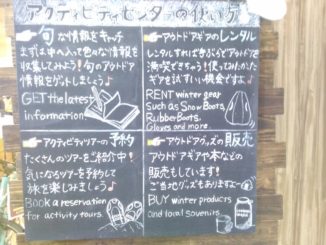 アクティビティセンターの使い方
旬な情報をキャッチ
まずは中へ入って色々な情報を
収集してみよう！旬のアウトドア
情報をゲットしましょう♪
GET the latest
information
アウトドアギアのレンタル
レンタルすれば手ぶらでアウトドアを
満喫できちゃう！使ってみたかった
ギアを試すいい機会ですよ♪
RENT winter gear
Such as Snow Boots,
Rubber Boots,
Gloves and more
アクティビティツアーの予約
たくさんのツアーをご紹介中！
気になるツアーを予約して
旅を楽しみましょう♪
BOOK a reservation
for activity tours.
アウトドアグッズの販売
アウトドアギアや本などの
販売もしています！
ご当地グッズもありますよー
BUY winter products
and local sovenirs